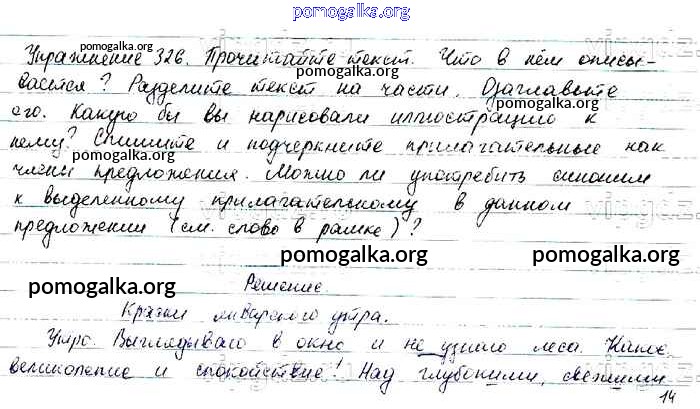 pomogalka.org
Упражнение 326. Прочитайте текст. Что в нём описы-
pomogalka.org
pomogalka.org
вается? Разделите текст на части. Озаглавьте
pomogalka.org
его. Какую бы вы нарисовали иллюстрацию к
pomogalka.org
нему? Спишите и подчеркните прилагательные как
pomogalka.org
члены предложения. Можно ли употребить синоним
к выделенному прилагательному в данном
предложении (см. слово в рамке)?
pomogalka.org pomogalka.org
pomogalka.org Решение.
Краски январского утра.
Утро. Выглядываю в окно и не узнаю леса. Какое
великолепие и спокойствие! Над глубокими, свежими
14